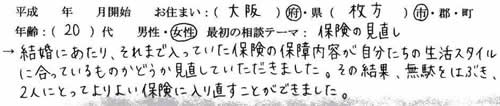 平成 年 月開始 お住まい:( 大阪 )府・県 ( 枚方 )市・郡・町
年齢:( 20 )代 男性・女性 最初の相談テーマ: 保険の見直し
→ 結婚にあたり、それまで入っていた保険の保障内容が自分たちの生活スタイル
に合っているものかどうか見直していただきました。その結果、無駄をはぶき、
2人にとってよりよい保険に入り直すことができました。